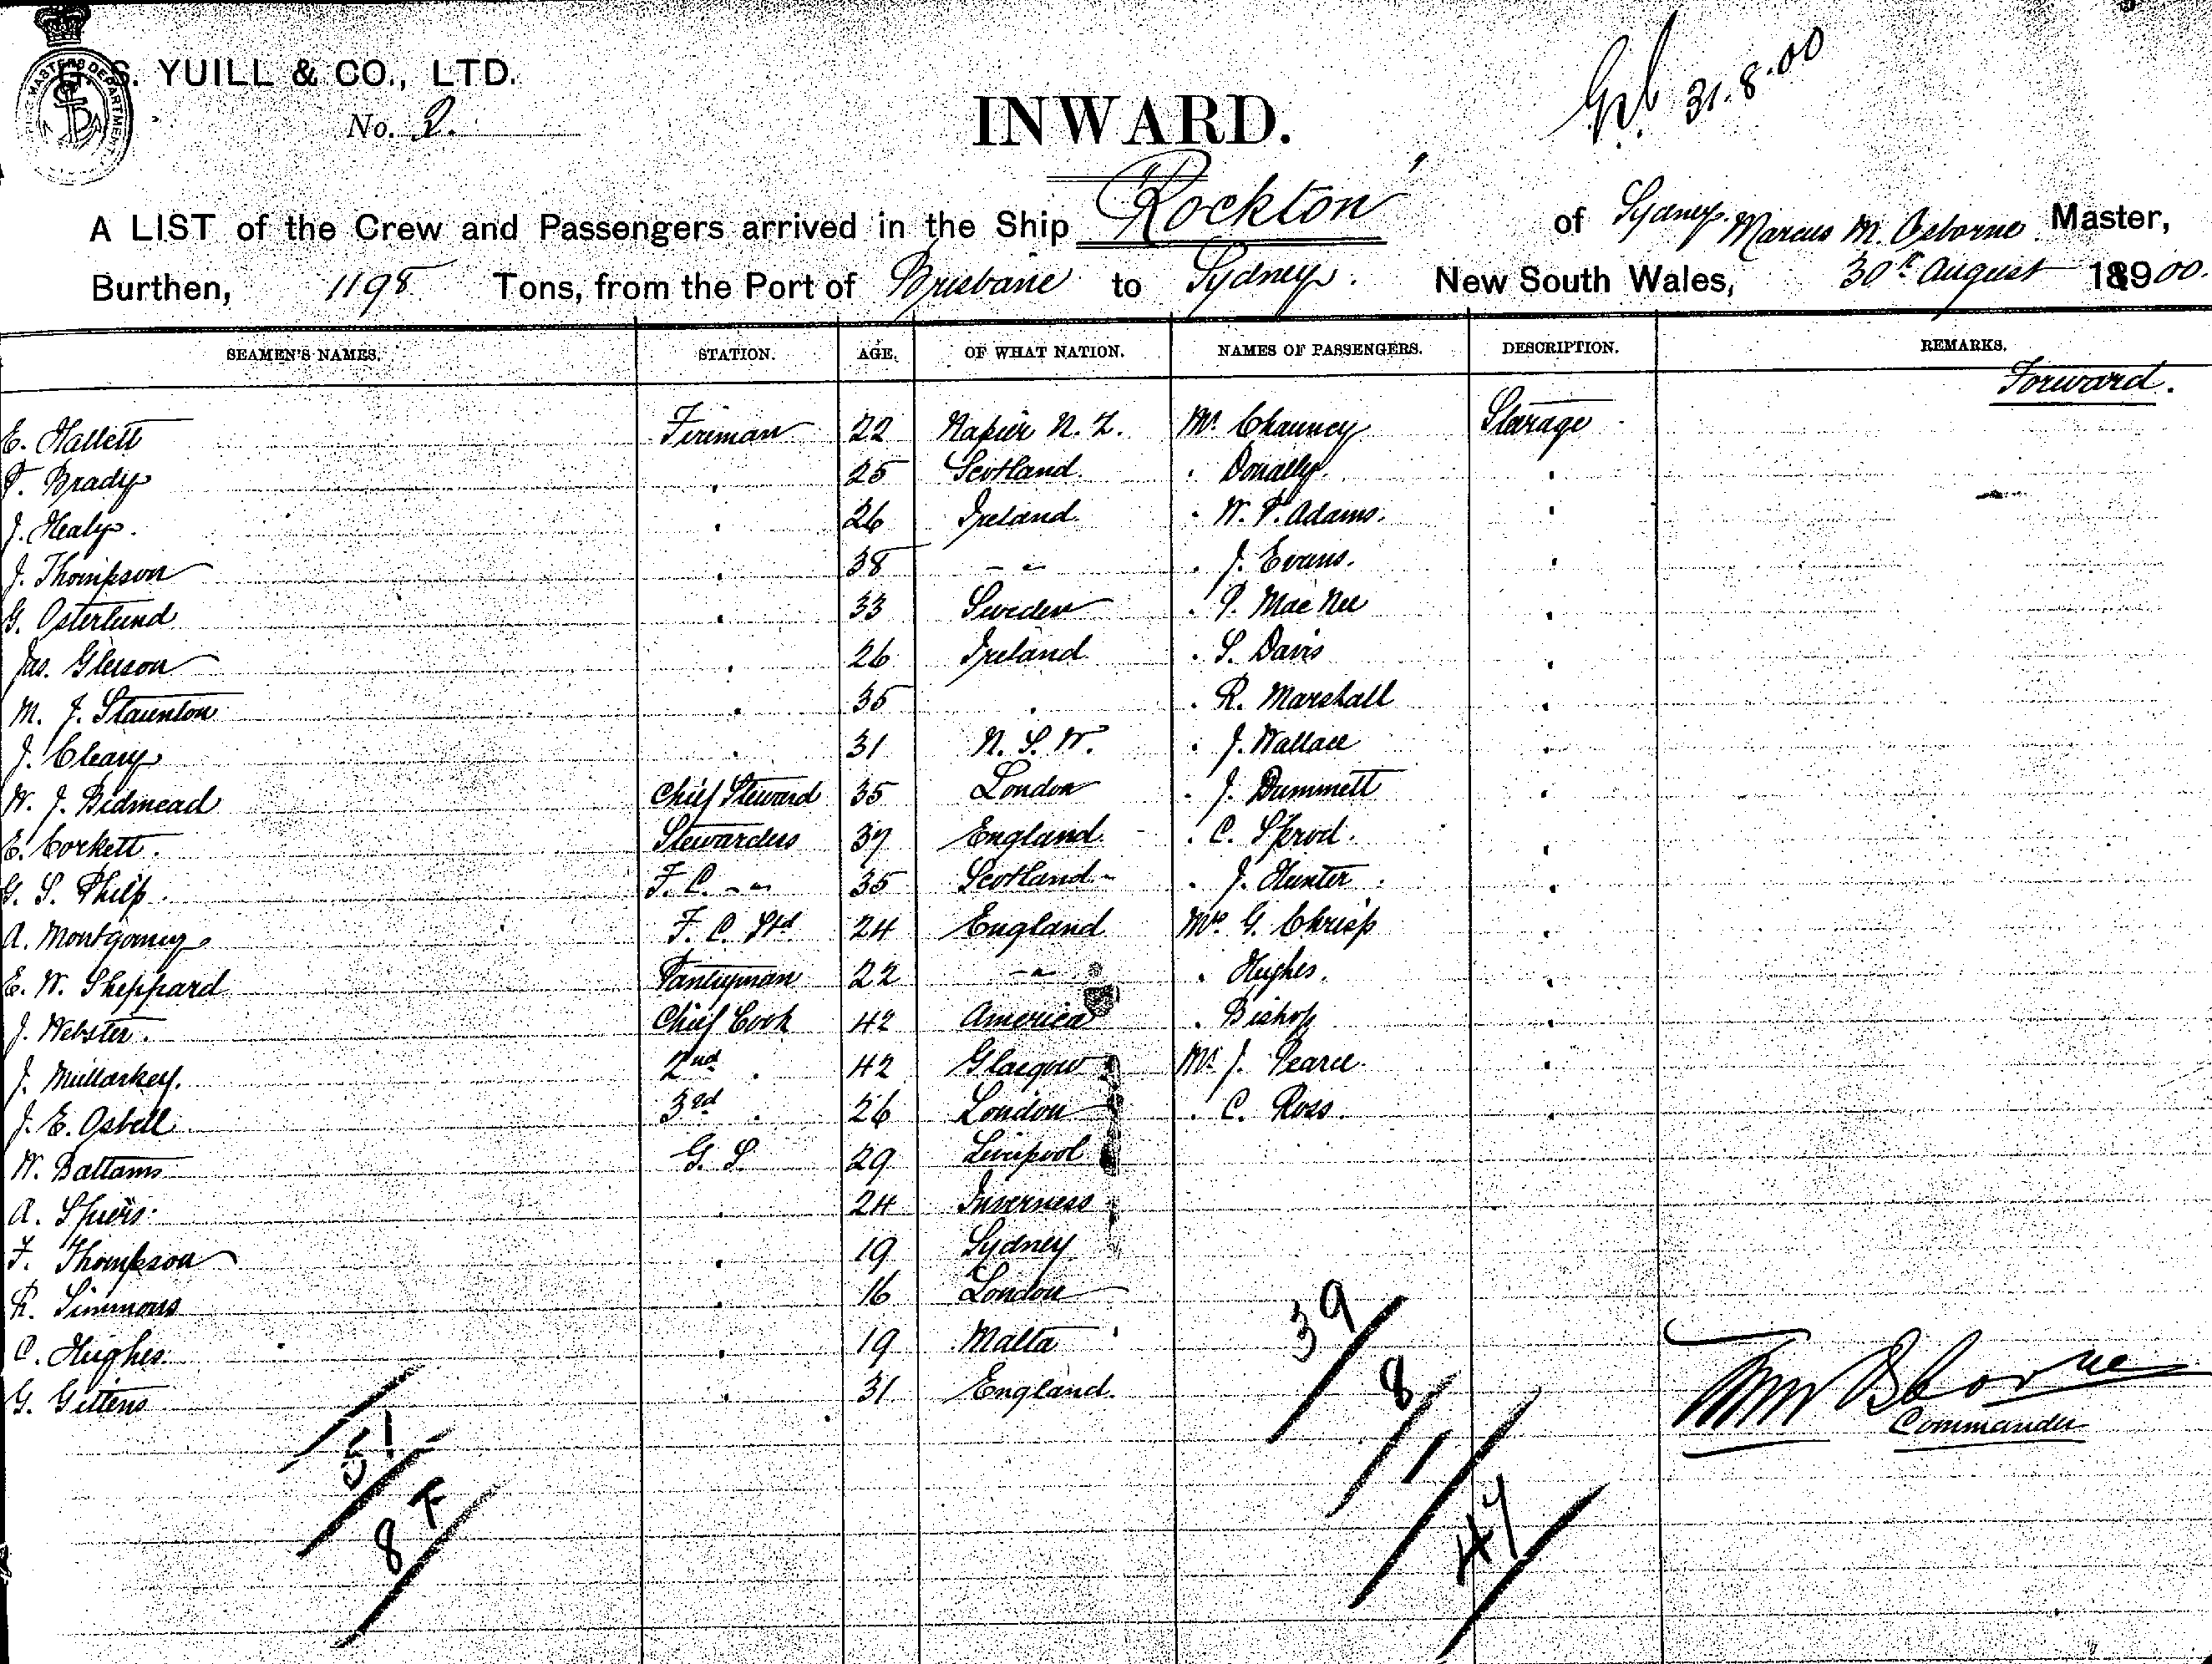 S. YUILL & CO., LTD.
MASTERS DEPARTMENT
No. 2.
INWARD.
31.8.00
A LIST of the Crew and Passengers arrived in the Ship "Rockton" of Sydney. Marcus M. Osborne Master,
Burthen, 1198 Tons, from the Port of Brisbane to Sydney. New South Wales, 30th August 1900.
SEAMEN'S NAMES. STATION. AGE. OF WHAT NATION. NAMES OF PASSENGERS. DESCRIPTION. REMARKS.
Forward.
E. Hallett Fireman 22 Napier N. Z. Mr. Chauncy Steerage
T. Brady . 25 Scotland . Donally .
J. Healy. . 26 Ireland . W. P. Adams. .
J. Thompson . 38 - " . J. Evans. .
G. Osterlund . 33 Sweden . P. Mac Nee .
Jas. Gleeson . 26 Ireland . S. Davis .
M. J. Staunton . 35 . . R. Marshall .
J. Cleary . 31 N. S. W. . J. Wallace .
W. J. Bidmead Chief Steward 35 London . J. Dummett .
E. Corkett. Stewardess 37 England . C. Sprod. .
G. S. Philp. F. C. - " 35 Scotland . J. Hunter .
A. Montgomery F. C. Std 24 England Mrs. G. Chrisp .
E. W. Sheppard Pantryman 22 - " . Hughes. .
J. Webster. Chief Cook 42 America . Bishop .
J. Mullarkey. 2nd . 42 Glasgow Mr. J. Pearce .
J. E. Osbell 3rd . 26 London . C. Ross. .
W. Battams G. S. 29 Liverpool
A. Spiers. . 24 Inverness
F. Thompson . 19 Sydney
R. Simmons . 16 London
C. Hughes . 19 Malta
G. Gittens . 31 England.
39/8/1/47
51/8
Osborne
Commander